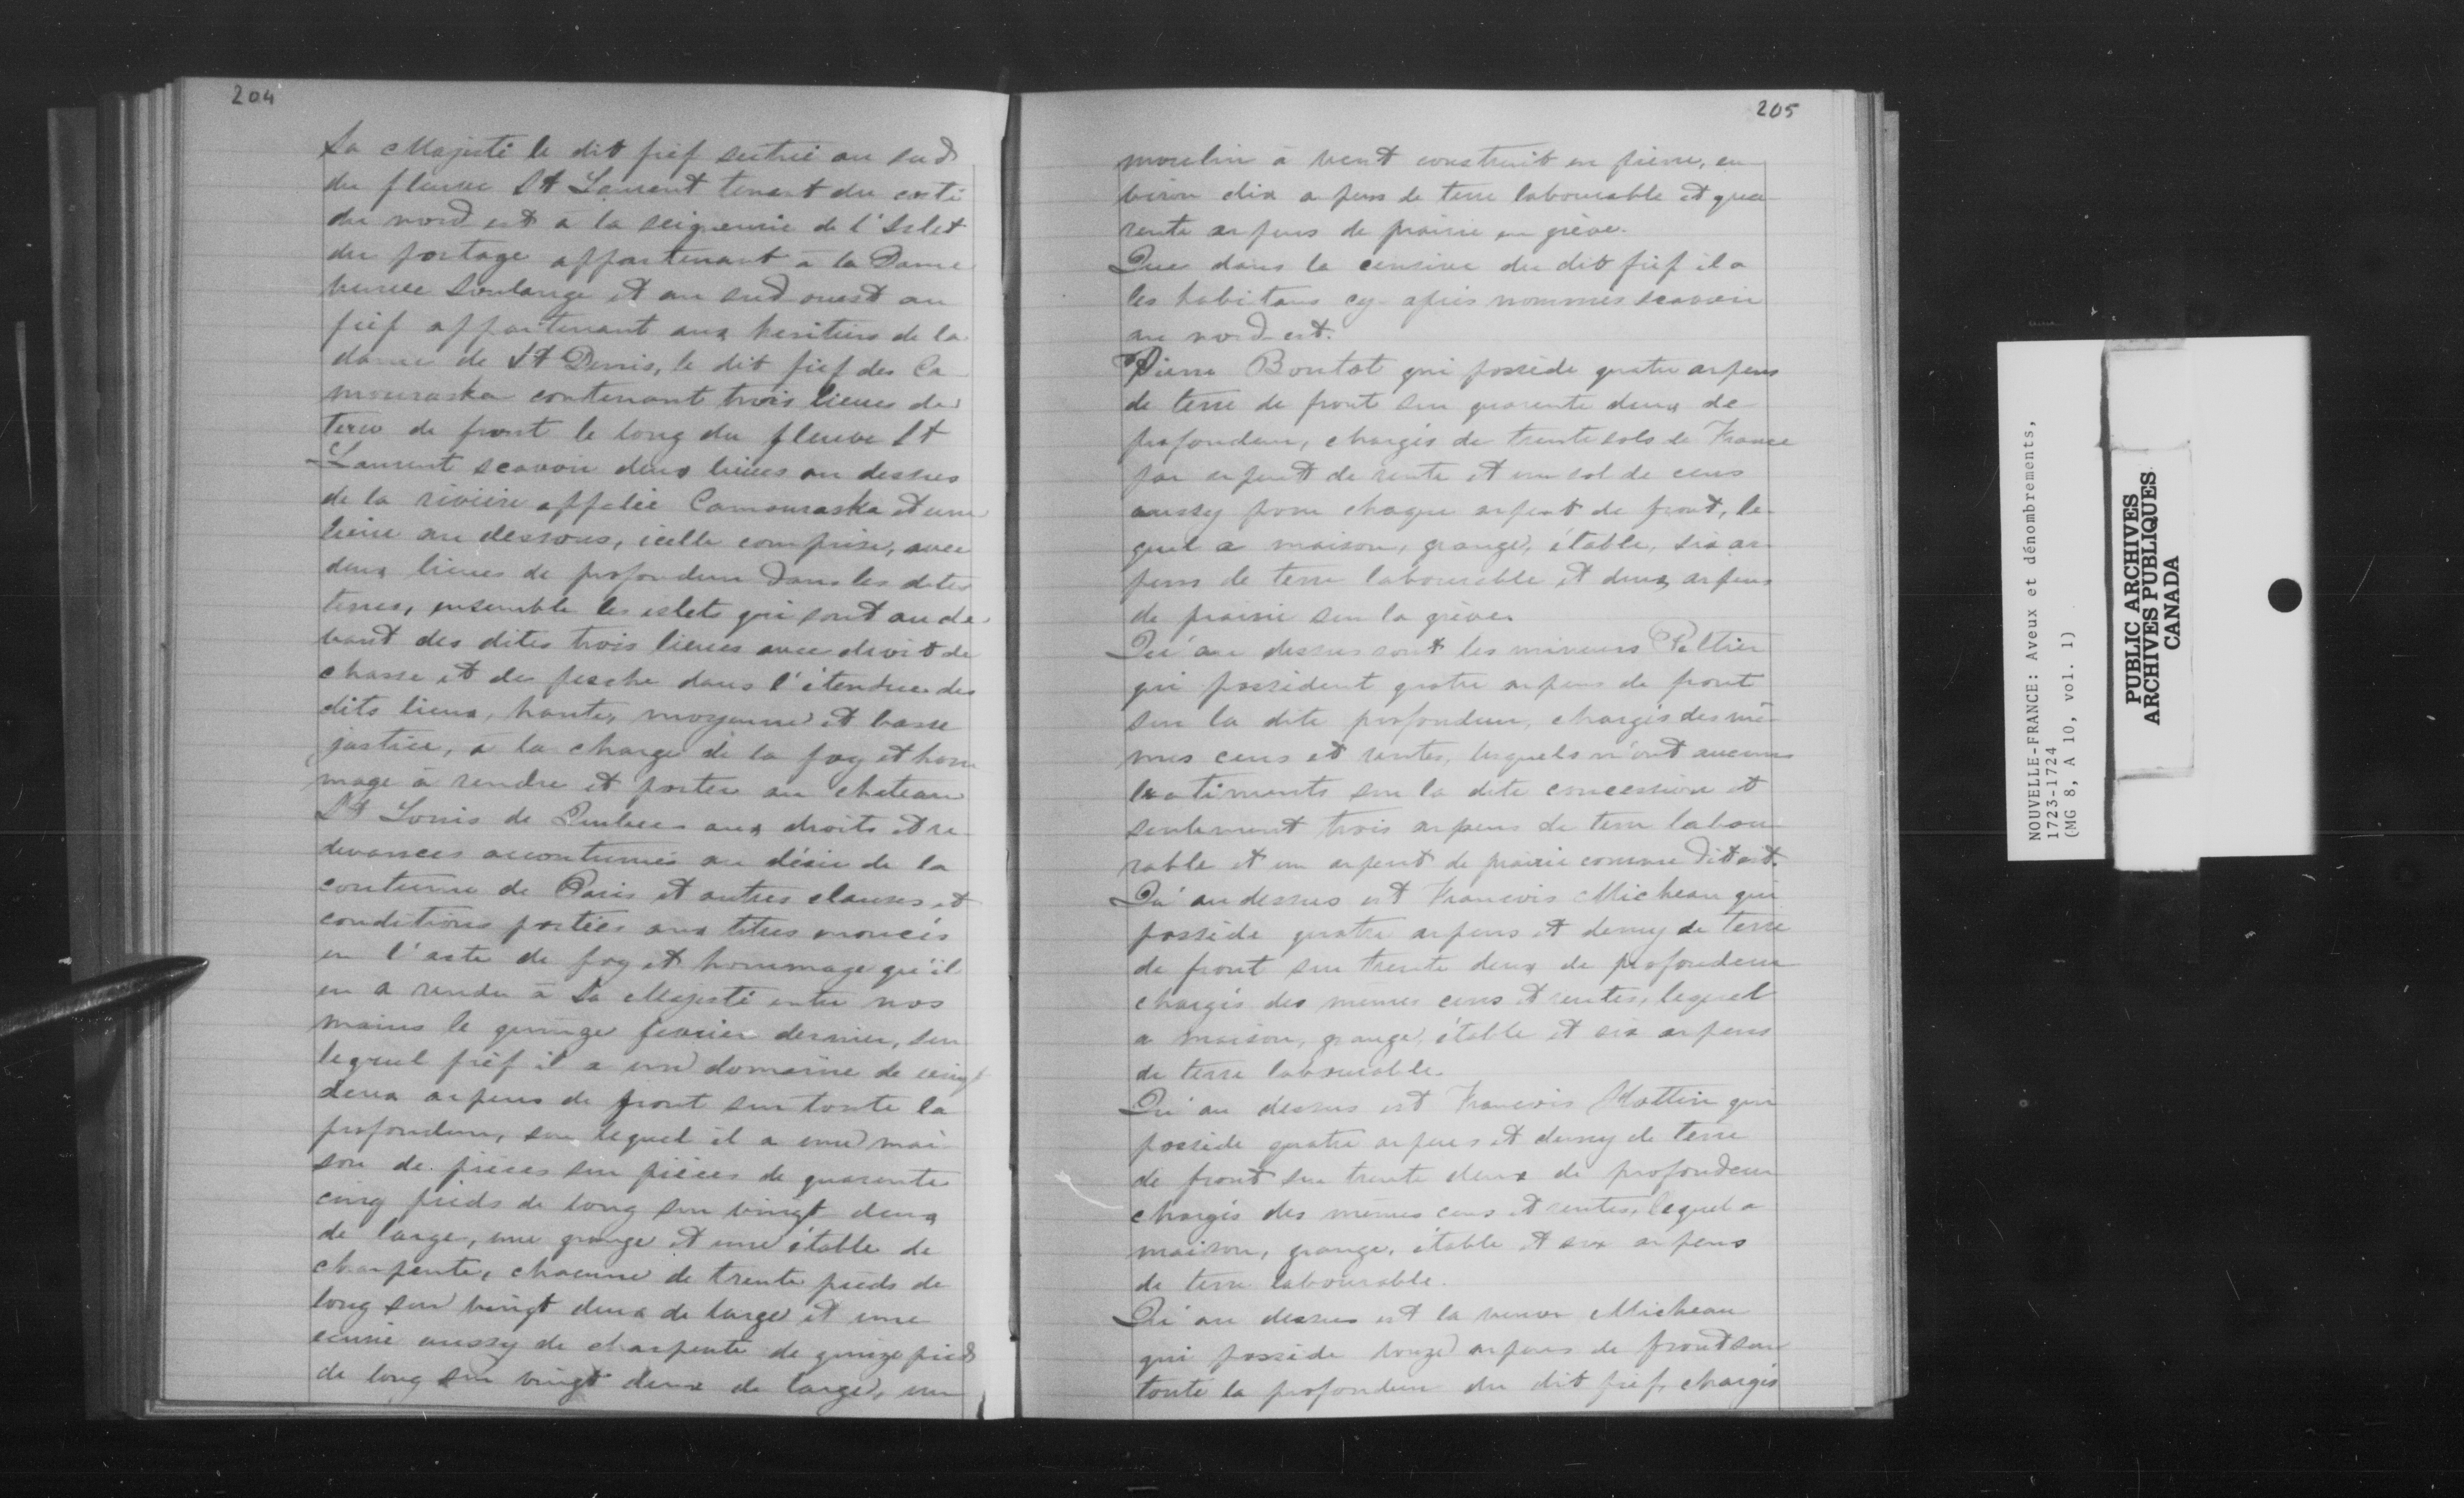 204
Sa Majesté le dit fief scitué au sud
du fleuve St Laurent tenant du costé
du nord est à la seigneurie de l'Islet
du portage appartenant à la Dame
veuve Soulange et au sud ouest au
fief appartenant aux heritiers de la
dame de St Denis, le dit fief des Ca
mouraska contenant trois lieues de
terre de front le long du fleuve St
Laurent scavoir deux lieues au dessus
de la rivière appelée Camouraska et une
lieue au dessous, icelle comprise, avec
deux lieues de profondeur dans les dites
terres, ensemble les islets qui sont au de
vant des dites trois lieues avec droit de
chasse et de pesche dans l'étendue des
dits lieux, haute, moyenne et basse
justice, à la charge de la foy et hom
mage à rendre et porter au chateau
St Louis de Quebec aux droits et re
devances accoutumés au désir de la
coutume de Paris et autres clauses et
conditions portées aux titres enoncés
en l'acte de foy et hommage qu'il
en a rendu à Sa Majesté entre nos
mains le quinze fevrier dernier, sur
lequel fief il a un domaine de vingt
deux arpens de front sur toute la
profondeur, sur lequel il a une mai
son de pièces sur pièces de quarente
cinq pieds de long sur vingt deux
de large, une grange et une étable de
charpente, chacune de trente pieds de
long sur vingt deux de large et une
ecurie aussy de charpente de quinze pieds
de long sur vingt deux de large, un
205
moulin à vent construit en pierre, en
viron dix arpens de terre labourable et qua
rente arpens de prairie en grève.
Que dans la censive du dit fief il a
les habitans cy-après nommés scavoir
au nord-est.
Pierre Boutot qui possède quatre arpens
de terre de front sur quarente deux de
profondeur, chargés de trente sols de France
par arpent de rente et un sol de cens
aussy pour chaque arpent de front, le
quel a maison, grange, étable, six ar
pens de terre labourable et deux arpens
de prairie sur la grève.
Qu'au dessus sont les mineurs Peltier
qui possèdent quatre arpens de front
sur la dite profondeur, chargés des mê
mes cens et rentes, lesquels n'ont aucuns
batiments sur la dite concession et
seulement trois arpens de terre labou
rable et un arpent de prairie comme dit est.
Qu'au dessus est Francois Micheau qui
possède quatre arpens et demy de terre
de front sur trente deux de profondeur
chargés des mêmes cens et rentes, lequel
a maison, grange, étable et six arpens
de terre labourable.
Qu'au dessus est Francois Hottin qui
possède quatre arpens et demy de terre
de front sur trente deux de profondeur
chargés des mêmes cens et rentes, lequel a
maison, grange, étable et six arpens
de terre labourable.
Qu'au dessus est la veuve Micheau
qui possède arpens de front sur
toute la profondeur du dit fief, chargés
NOUVELLE-FRANCE: Aveux et dénombrements,
1723-1724
(MG 8, A 10, vol. 1)
PUBLIC ARCHIVES
ARCHIVES PUBLIQUES
CANADA